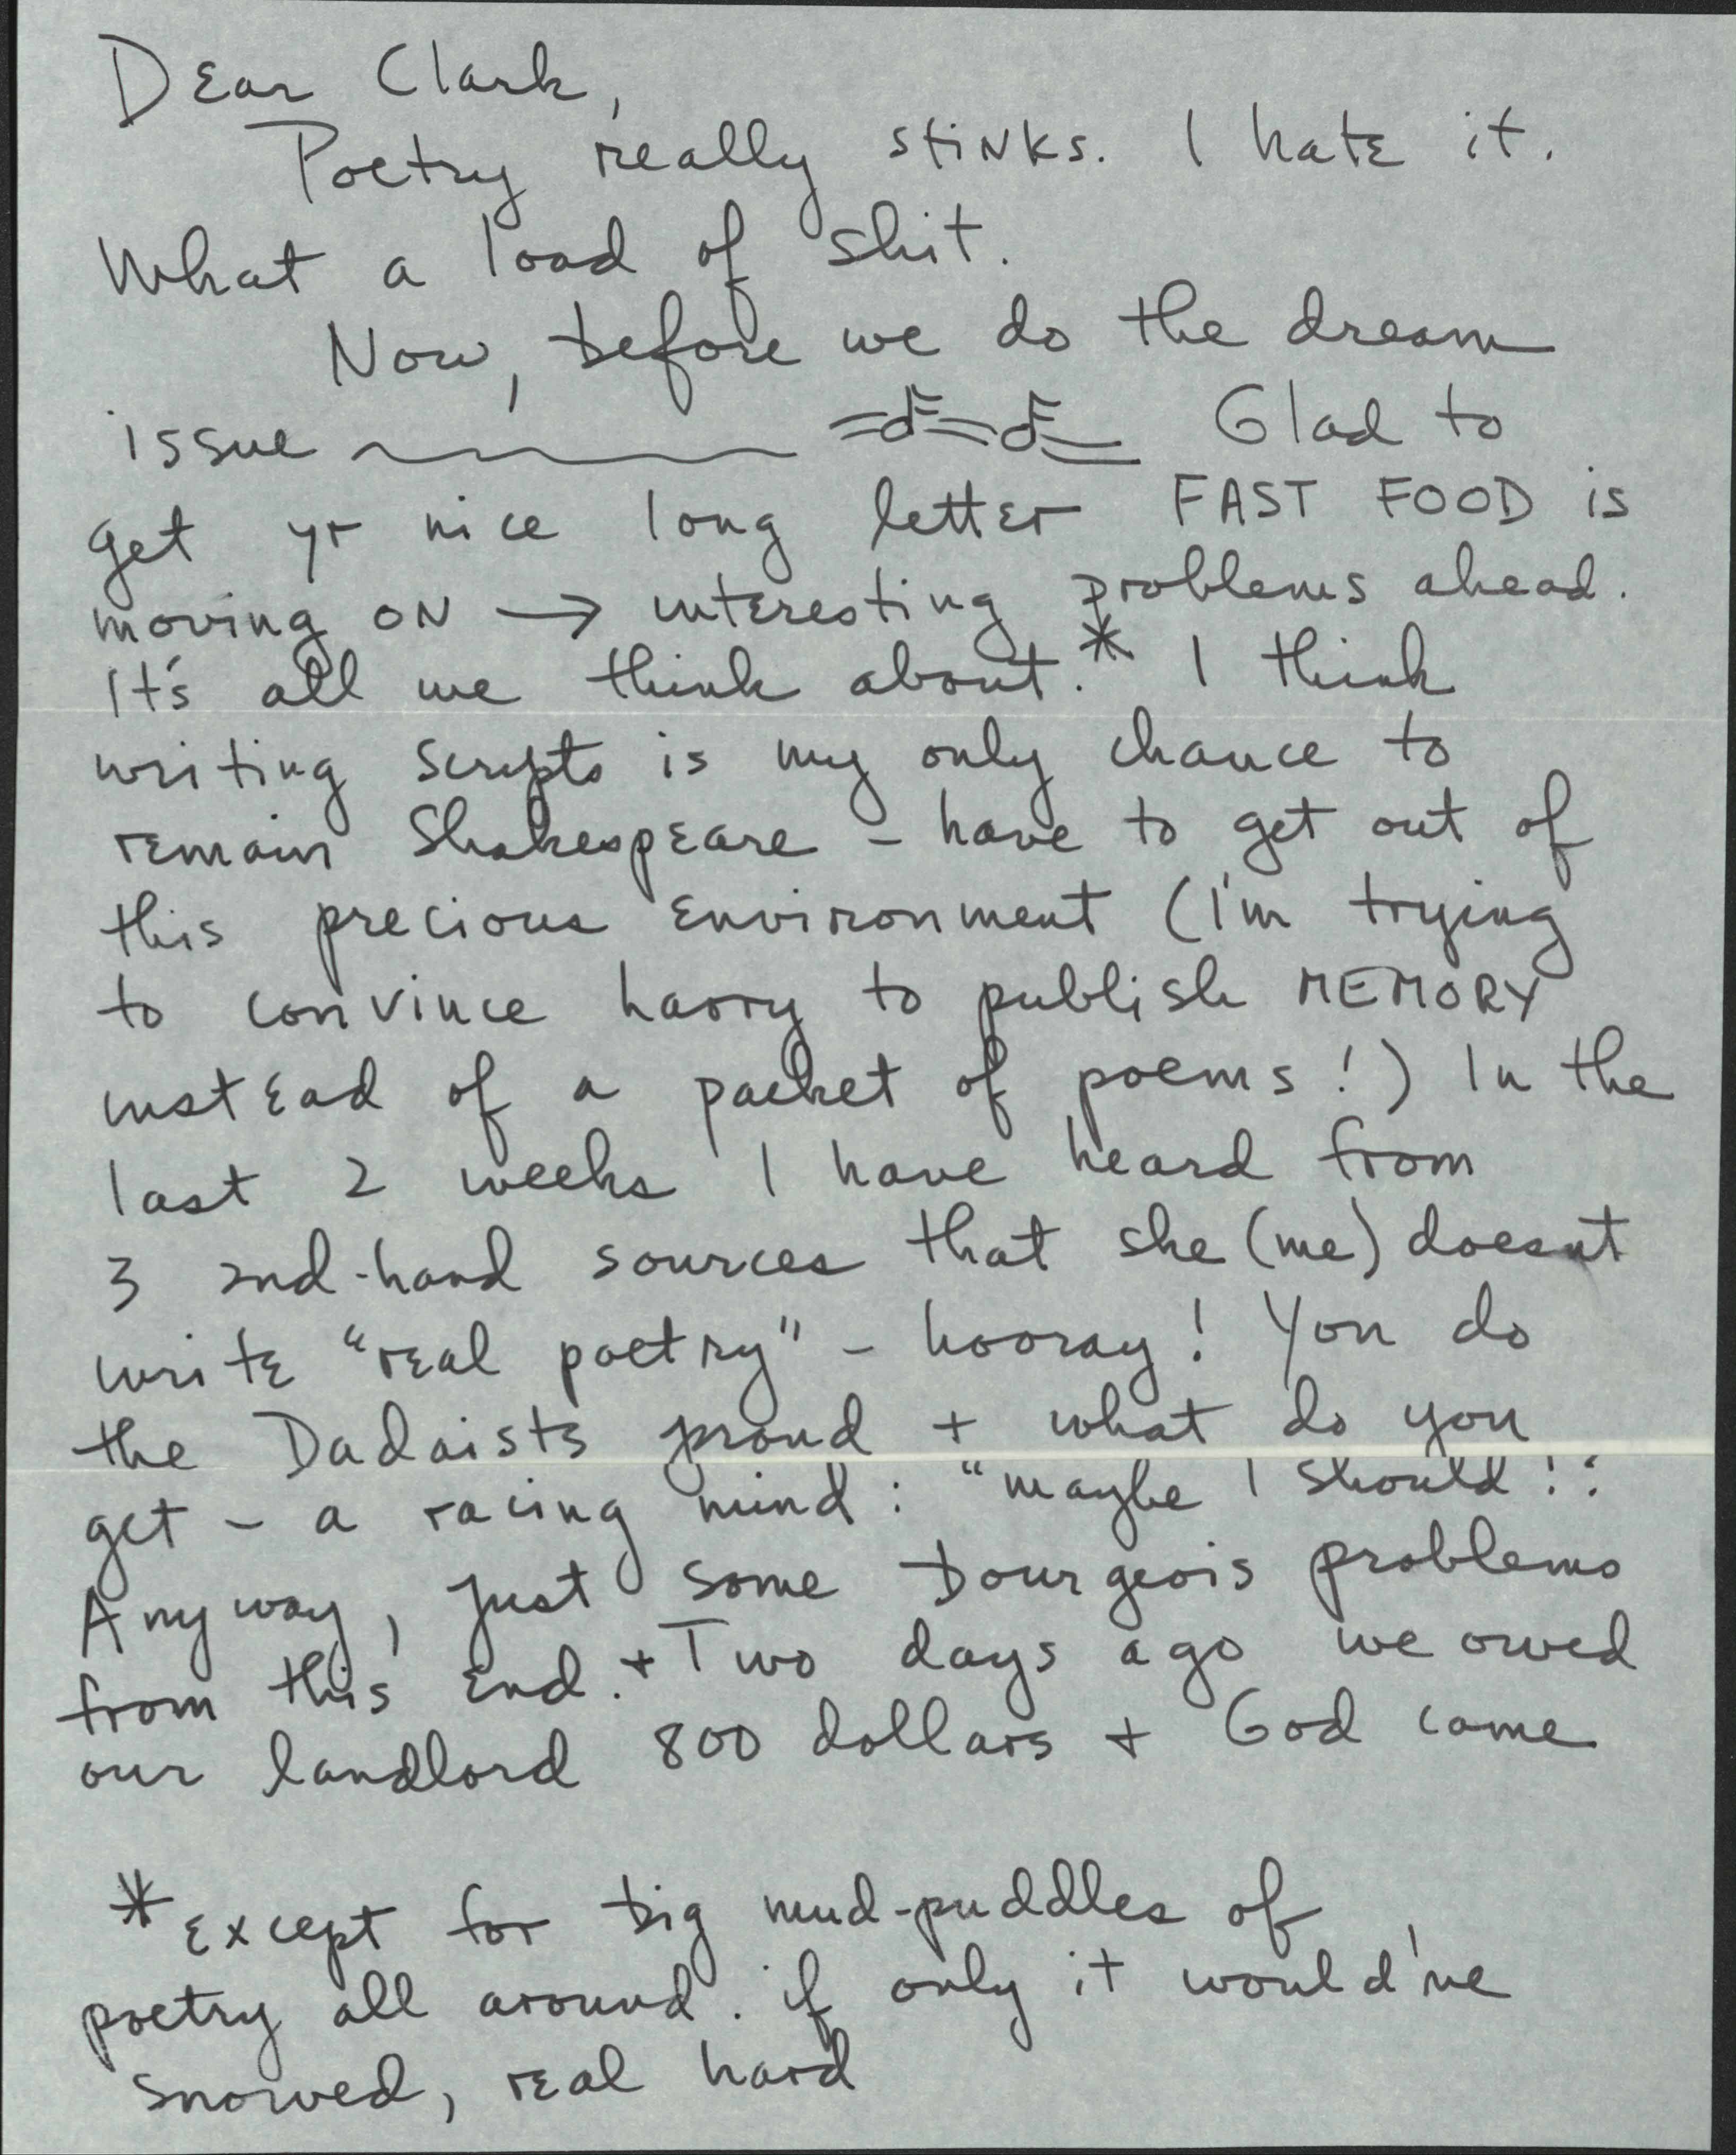 Dear Clark,
Poetry really stinks. I hate it.
What a load of shit.
Now, before we do the dream
issue Glad to
get yr nice long letter FAST FOOD is
moving ON → interesting problems ahead.
It's all we think about.* I think
writing scripts is my only chance to
remain Shakespeare – have to get out of
this precious environment (I'm trying
to convince harry to publish MEMORY
instead of a packet of poems!) In the
last 2 weeks I have heard from
3 2nd-hand sources that she (me) doesnt
write "real poetry" – hooray! You do
the Dadaists proud + what do you
get – a racing mind: "maybe I should!:
Anyway, just some bourgeois problems
from this end. + Two days ago we owed
our landlord 800 dollars + God came
*except for big mud-puddles of
poetry all around. if only it would've
snowed, real hard